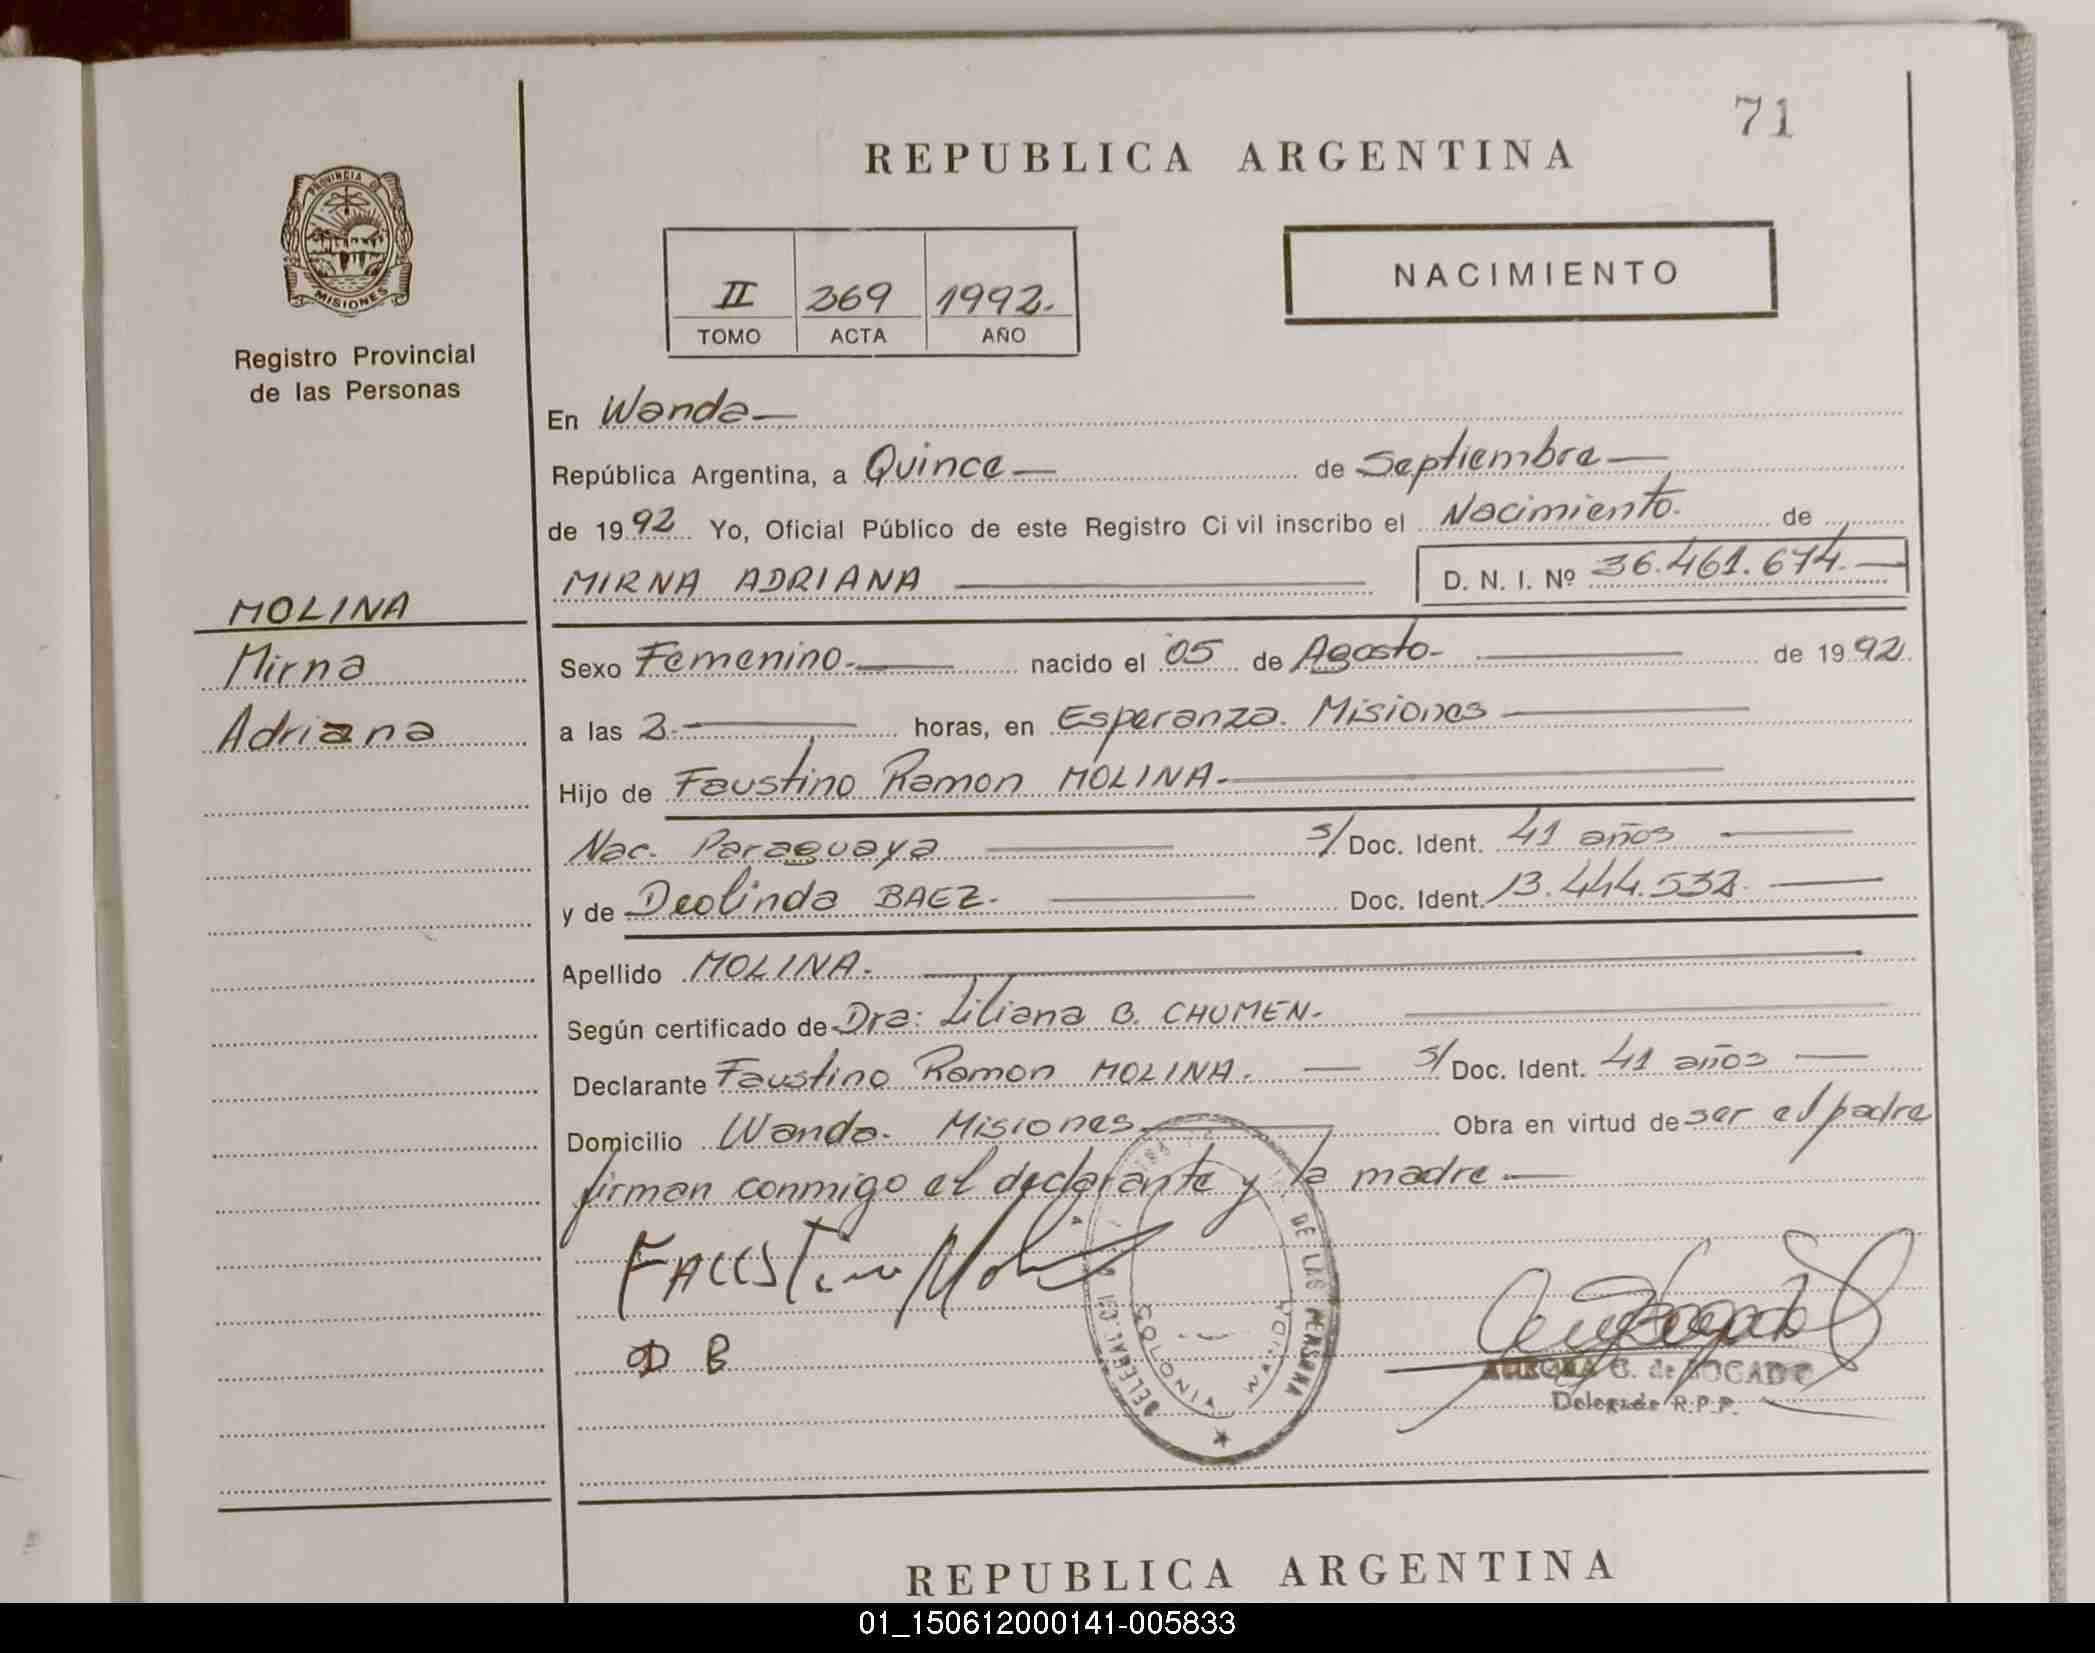 71
REPUBLICA ARGENTINA
PROVINCIA DE
MISIONES
Registro Provincial
de las Personas
II 269 1992.
TOMO ACTA AÑO
NACIMIENTO
En Wanda
República Argentina, a Quince de Septiembre
de 1992 Yo, Oficial Público de este Registro Civil inscribo el Nacimiento. de
MIRNA ADRIANA D. N. I. Nº 36.461.674.
MOLINA
Mirna
Adriana
Sexo Femenino. nacido el 05 de Agosto- de 1992
a las 2. horas, en Esperanza. Misiones
Hijo de Faustino Ramon MOLINA.
Nac. Paraguaya s/ Doc. Ident. 41 años
y de Deolinda BAEZ. Doc. Ident. 13.444.532.
Apellido MOLINA.
Según certificado de Dra: Liliana B. CHUMEN.
Declarante Faustino Ramon MOLINA. s/ Doc. Ident. 41 años
Domicilio Wanda. Misiones Obra en virtud de ser el padre
firman conmigo el declarante y la madre
FAUSTino Mol
D B
DE LAS PERSONA
COLONIA WANDA
C. de BOCADO
Delegada R.P.P.
REPUBLICA ARGENTINA
01_150612000141-005833